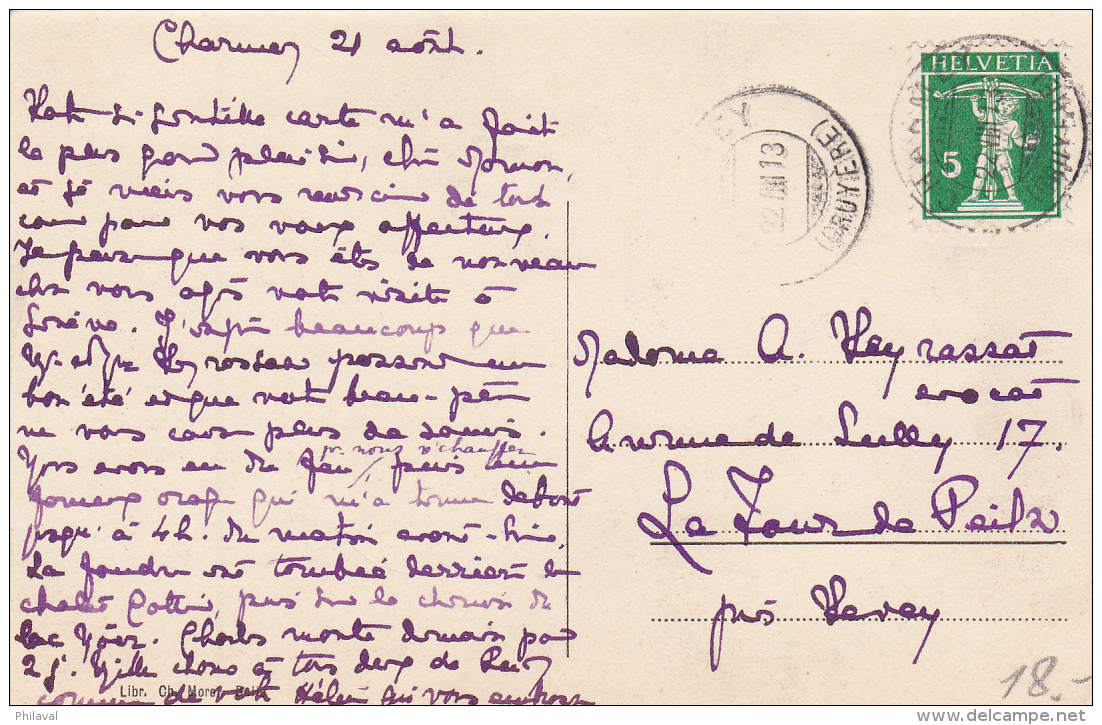 Charmey 21 août.
Votre si gentille carte m'a fait
le plus grand plaisir, chère Maman,
et je viens vous remercier de tout
cœur pour vos vœux affectueux.
Je pense que vous êtes de nouveau
chez vous après votre visite à
Genève. J'espère beaucoup que
Mr et Mme Keyrassat passent un
bon été et que votre beau-père
ne vous cause plus de soucis.
Nous avons eu du feu pr nous réchauffer puis un
fameux orage qui m'a tenue debout
jusqu'à 4h. du matin avant-hier.
La foudre est tombée derrière le
chalet Cottier, puis sur le chemin du
lac Noir. Charles monte demain pour
2 j. Mille choses à tous deux de
comme de votre Hélène qui vous embrasse
Libr. Ch. Morel, Bulle
HELVETIA
5
22 VIII 13
(GRUYÈRE)
Madame A. Keyrassat
avocat
Avenue de Sully 17.
La Tour de Peilz
près Vevey
18.-
© Philaval
delcampe.net